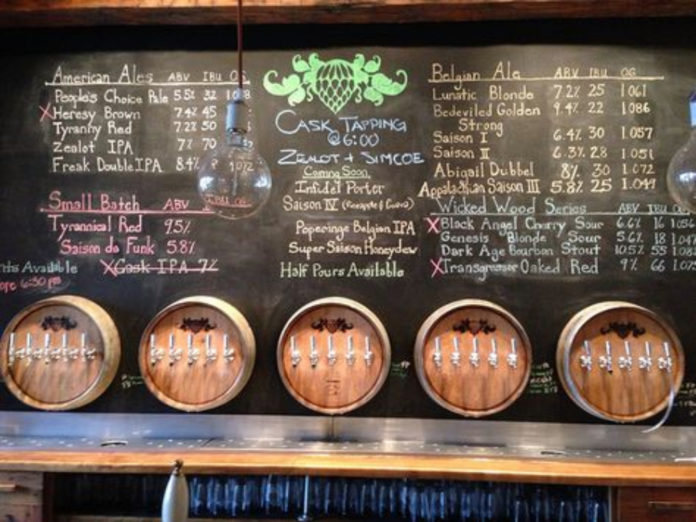 American Ales ABV IBU OG
People's Choice Pale 5.5% 32
X Heresy Brown 7.4% 45
Tyranny Red 7.2% 50
Zealot IPA 7% 70
Freak Double IPA 8.4%
Small Batch ABV IBU OG
Tyrannical Red 9.5%
Saison de Funk 5.8%
X Gosk IPA 7%
Available
6:30 pm
Cask Tapping
@ 6:00
Zealot + Simcoe
Coming Soon
Infidel Porter
Saison IV
Poperinge Belgian IPA
Super Saison Honeydew
Half Pours Available
Belgian Ale ABV IBU OG
Lunatic Blonde 7.2% 25 1.061
Bedeviled Golden 9.4% 22 1.086
Strong
Saison I 6.4% 30 1.057
Saison II 6.3% 28 1.051
Abigail Dubbel 8% 30 1.072
Appalachian Saison III 5.8% 25 1.049
Wicked Wood Series ABV IBU OG
X Black Angel Cherry Sour 6.6% 16 1.056
Genesis Blonde Sour 5.6% 18
Dark Age Bourbon Stout 10.5% 55
X Transgressor Oaked Red 9% 66